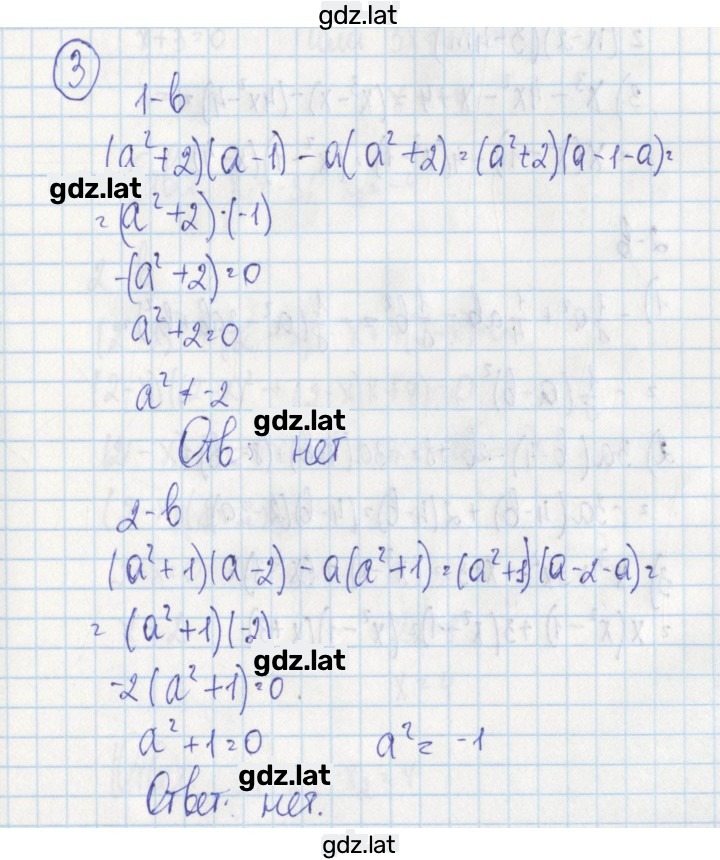 gdz.lat
3
1-в
(a²+2)(a-1) - a(a²+2) = (a²+2)(a-1-a) =
gdz.lat
= (a²+2)·(-1)
-(a²+2)=0
a²+2=0
a² ≠ -2
gdz.lat
Отв: нет
2-в
(a²+1)(a-2) - a(a²+1) = (a²+1)(a-2-a) =
= (a²+1)(-2)
gdz.lat
-2(a²+1)=0.
a²+1=0 a² = -1
gdz.lat
Ответ: нет.
gdz.lat